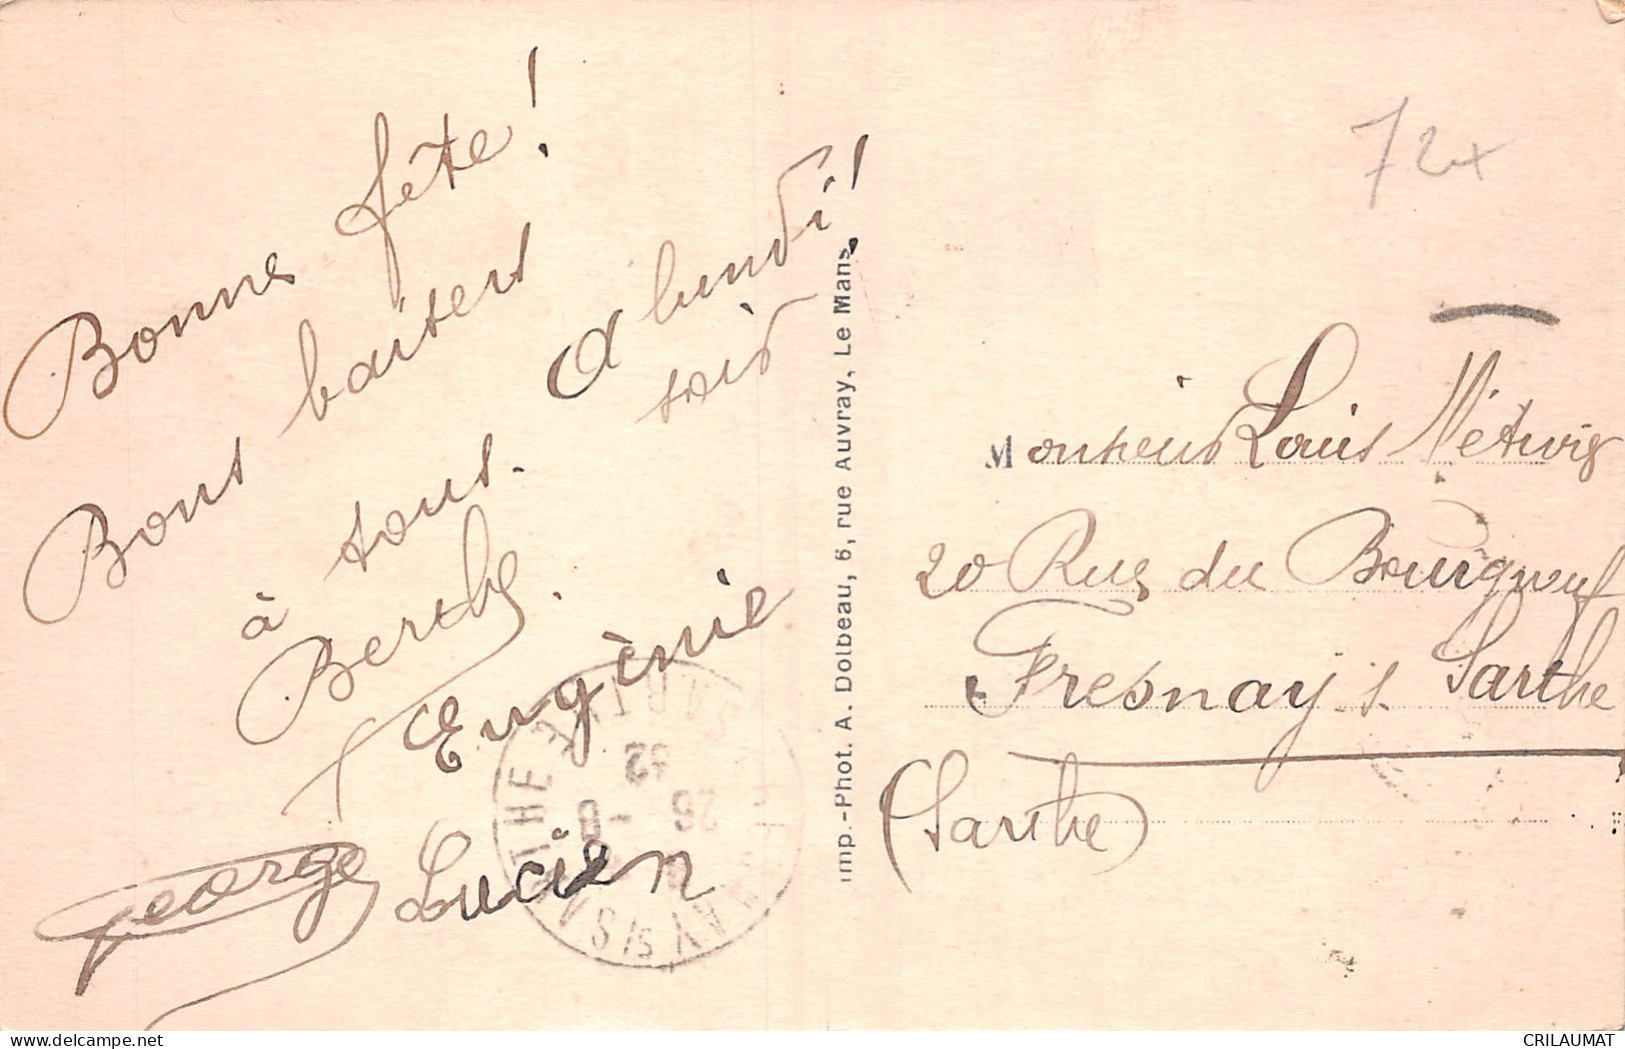 Bonne fête!
Bons baisers
à tous.
A lundi!
soir
Berthe.
Eugènie
George Lucien
Imp.-Phot. A. Dolbeau, 6, rue Auvray, Le Mans
72x
Monsieur Louis
20 Rue du Bourgneuf
Fresnay s. Sarthe
(Sarthe)
SARTHE
26 -8
32
CRILAUMAT